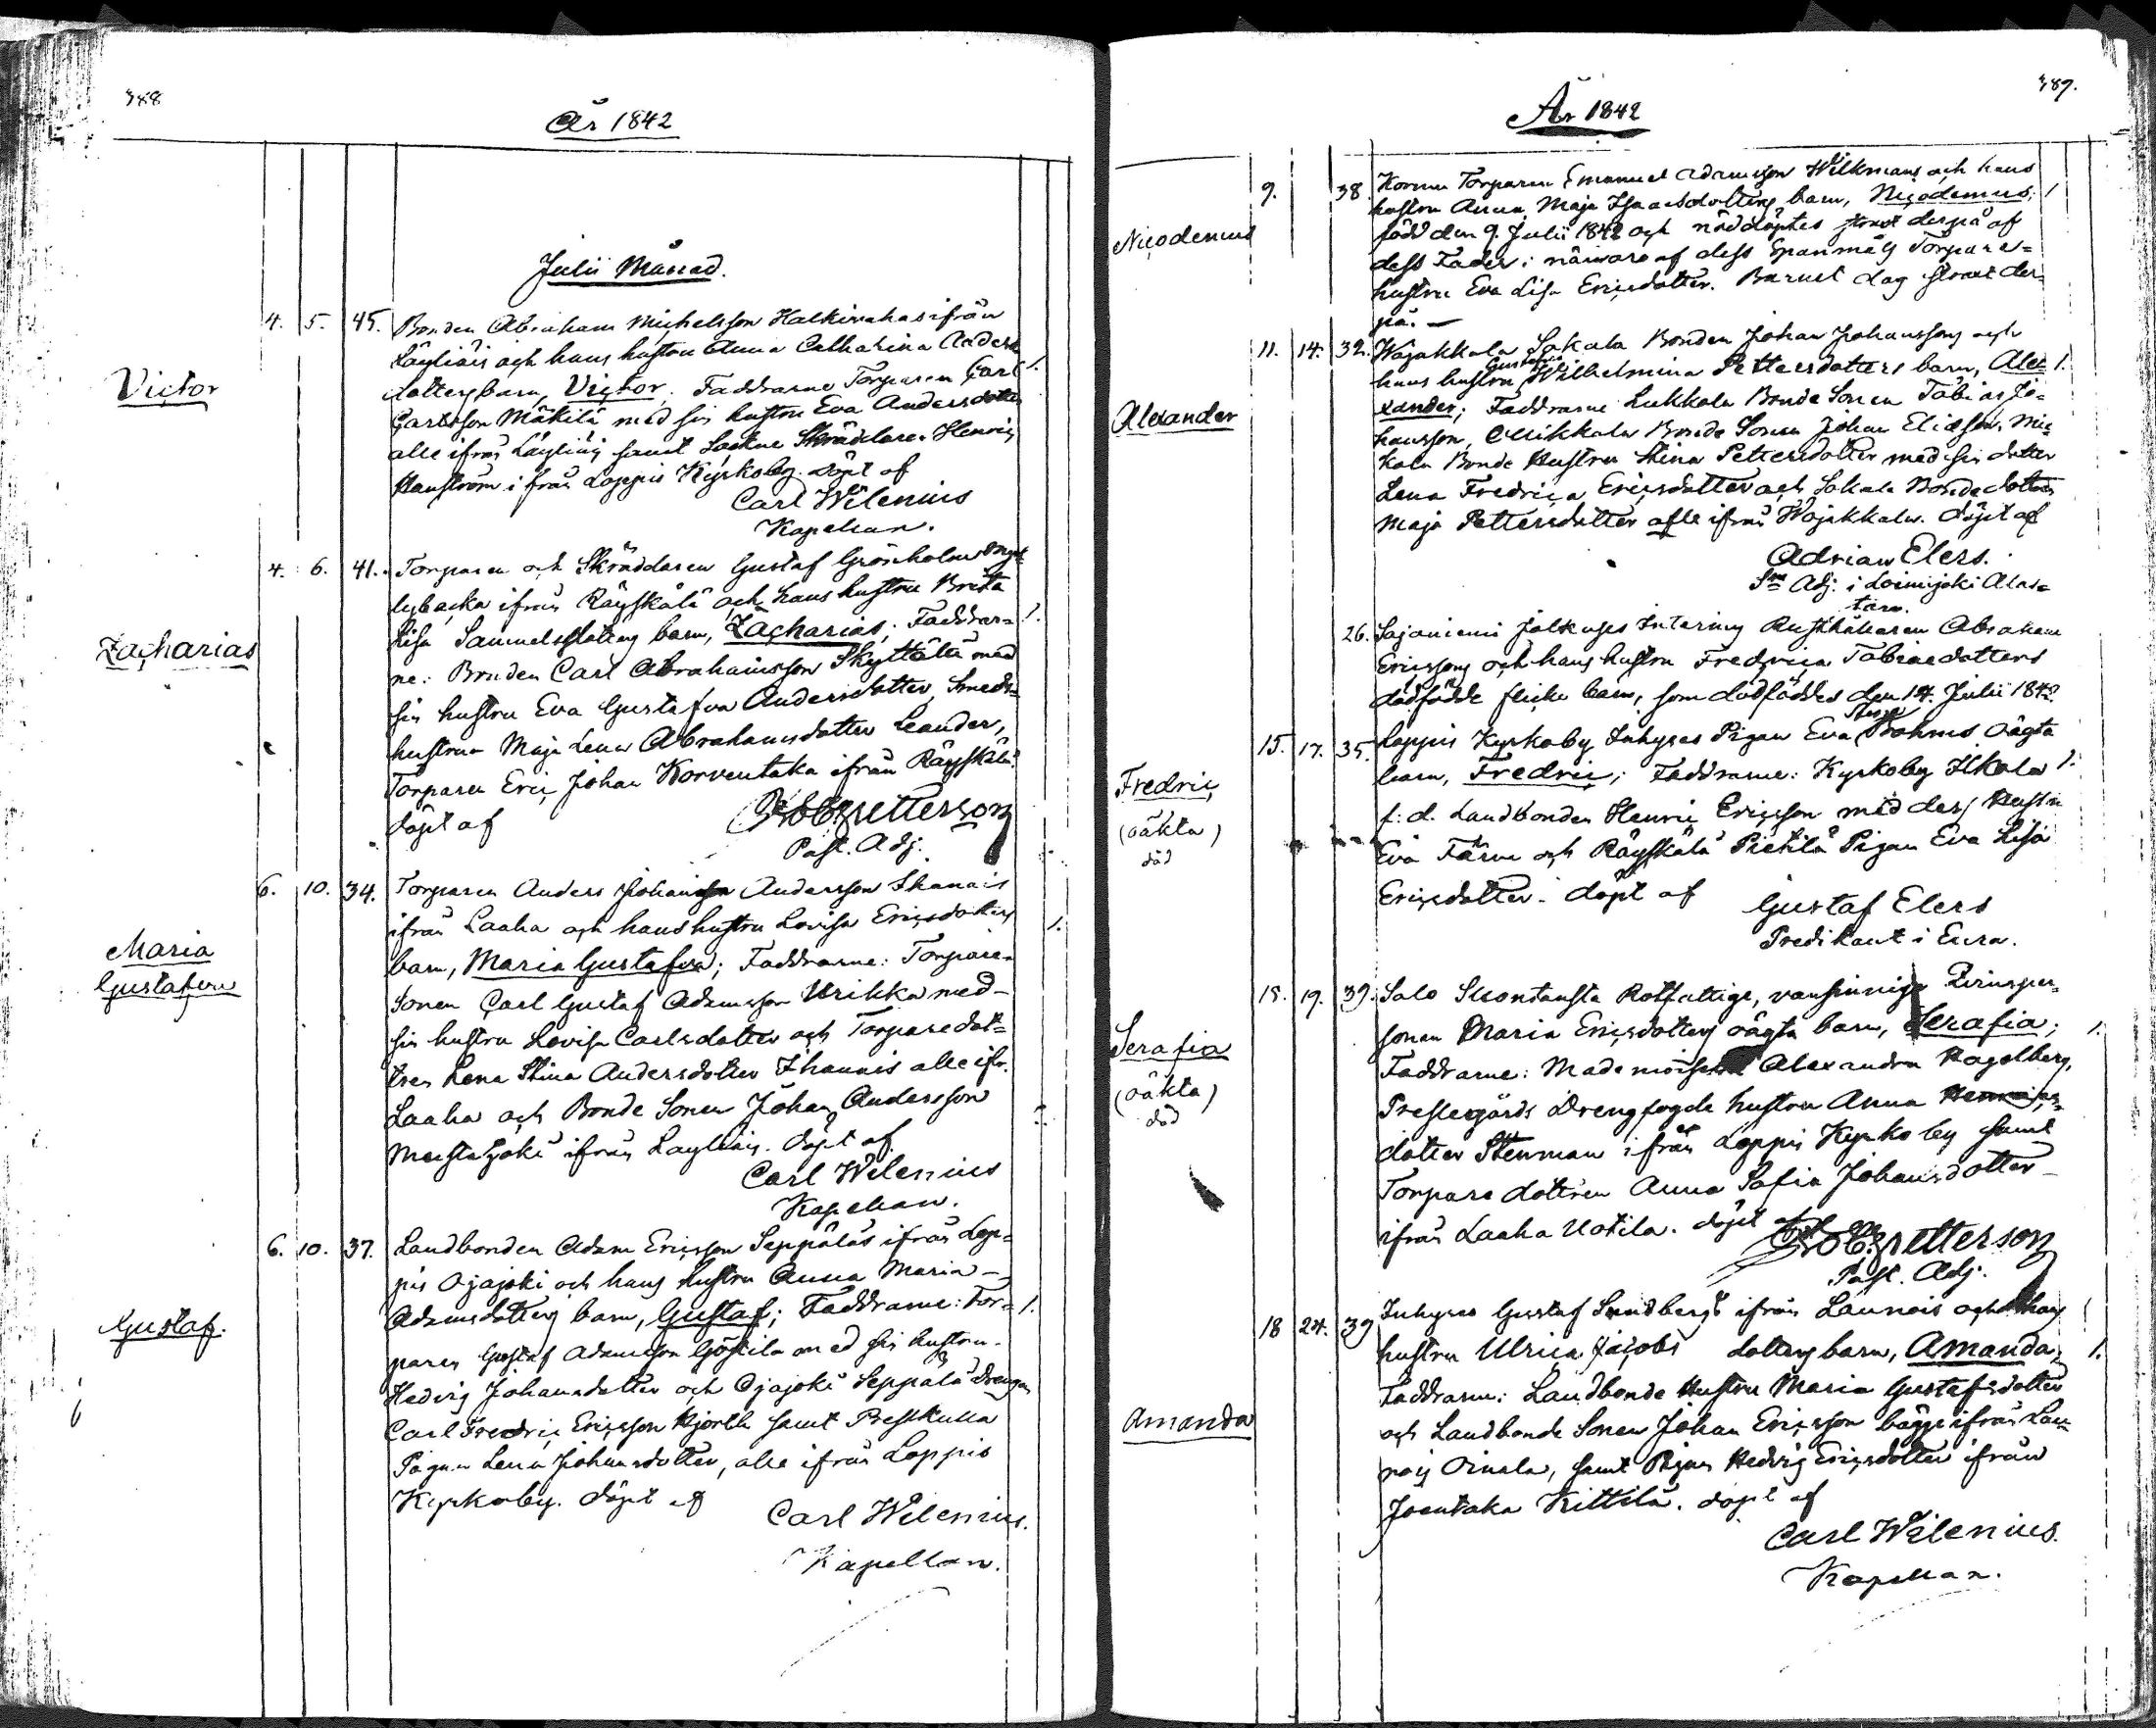 388
År 1842
Julii Månad.
4. 5. 45. Bonden Abraham Michelsson Halkivahas ifrån
Läyliäis och hans hustru Anna Catharina Anders
Victor
dotters barn, Victor; Faddrarne Torparen Carl 1.
Carlsson Mäkilä med sin hustru Eva Andersdotter
alle ifrån Läyliäis samt Sockne Skräddaren Henric
Hanström ifrån Loppis Kyrkoby. döpt af
Carl Wilenius
Kapellan.
4. 6. 41. Torparen och Skräddaren Gustaf Grönholms
lybacka ifrån Räyskälä och hans hustru Brita
Zacharias
Lisa Samuelsdotters barn, Zacharias; Faddrar= 1.
ne: Bonden Carl Abrahamsson Skyttälä med
sin hustru Eva Gustafva Andersdotter, Smeds=
hustrun Maja Lena Abrahamsdotter Leander,
Torparen Eric Johan Korventaka ifrån Räyskälä
döpt af
Petterson
Past. Adj.
6. 10. 34. Torparen Anders Johan Andersson Ihanais
ifrån Laaha och hans hustru Lovisa Ericsdotters 1.
Maria
Gustafva
barn, Maria Gustafva; Faddrarne: Torpare=
Sonen Carl Gustaf Adamsson Urikka med
sin hustru Lovisa Carlsdotter och Torparedot=
tren Lena Stina Andersdotter Ihanais alle ifr.
Laaha och Bonde Sonen Johan Andersson
Mustajoki ifrån Layliäis. döpt af
Carl Wilenius
Kapellan.
6. 10. 37. Landbonden Adam Ericsson Seppäläs ifrån Lop=
pis Ojajoki och hans hustru Anna Maria
Gustaf.
Adamsdotters barn, Gustaf; Faddrarne: Tor= 1.
paren Gustaf Adamsson Göstila med sin hustru
Hedvig Johansdotter och Ojajoki Seppälä Drengen
Carl Fredric Ericsson Hjorth samt Prestkulla
Pigan Lena Johansdotter, alle ifrån Loppis
Kyrkoby. döpt af
Carl Wilenius.
Kapellan.
389.
År 1842
9. 38. Korma Torparen Emanuel Adamsson Wilkmans och hans
Nicodemus
hustru Anna Maja Isaacsdotters barn, Nicodemus; 1
född den 9. Julii 1842 och nöddöptes strax derpå af
dess Fader i närvaro af dess Spanmåls Torpare=
hustru Eva Lisa Ericsdotter. Barnet dog strax der=
på. —
11. 14. 32. Wojakkala Sakala Bonden Johan Johanssons och
Gustava
Alexander
hans hustru Wilhelmina Pettersdotters barn, Ale= 1.
xander; Faddrarne Lukkala Bonde Sonen Tobias Jo=
hansson, Mikkola Bonde Sonen Johan Eliasson, Mik=
kola Bonde Hustru Stina Pettersdotter med sin dotter
Lena Fredrica Ericsdotter och Sakala Bonde dotter
Maja Pettersdotter alle ifrån Wojakkala. döpt af
Adrian Elers.
Sne Adj. i Loimijoki Alas=
taro.
26. Sajaniemi Jalkuses Intering Rusthållaren Abraham
Ericssons och hans hustru Fredrica Tobiaedotters
dödfödde flicke barn, som dödföddes den 14. Julii 1842
15. 17. 35. Loppis Kyrkoby Inhyses Pigan Eva Bohms oägta
Fredric
(oäkta)
död
barn, Fredric; Faddrarne: Kyrkoby Ilkala 1.
f: d. Landbonden Henric Ericsson med dess Hustru
Eva Färm och Räyskälä Pietilä Pigan Eva Lisa
Ericsdotter. döpt af
Gustaf Elers
Predikant i Eura.
15. 19. 39. Salo Suontausta Rotfattige, vansinnige Qvinsper=
Serafia
(oäkta)
död
sonen Maria Ericsdotters oägta barn, Serafia; 1.
Faddrarne: Mademoiselle Alexandra Hagelberg,
Prestegårds Drengfogde hustru Anna Henrics=
dotter Stenman ifrån Loppis Kyrkoby samt
Torpare dottren Anna Sofia Johansdotter
ifrån Laaha Uotila. döpt af
Petterson
Past. Adj.
18 24. 39 Inhyses Gustaf Sundbergs ifrån Launois och hans
Amanda
hustru Ulrica Jacobs dotters barn, Amanda; 1.
Faddrarne: Landbonde Hustru Maria Gustafsdotter
och Landbonde Sonen Johan Ericsson bägge ifrån Lau=
nois Oinala, samt Pigan Hedvig Ericsdotter ifrån
Joentaka Kittilä. döpt af
Carl Wilenius.
Kapellan.